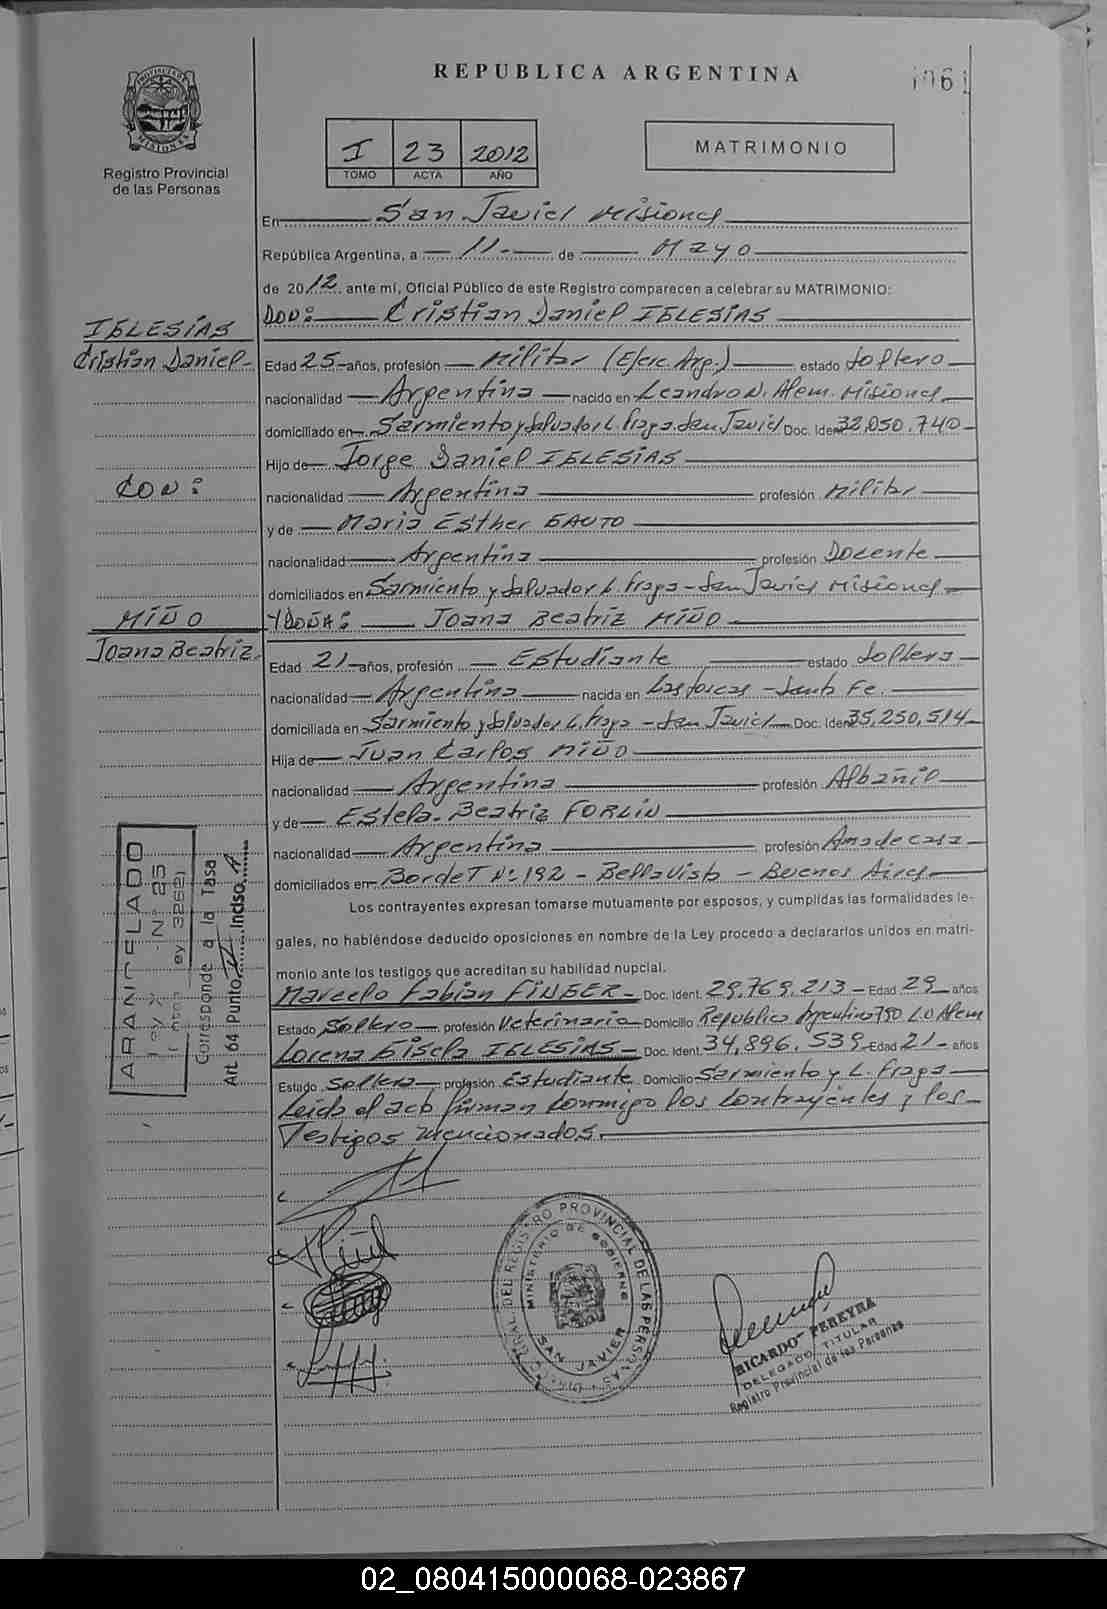 REPUBLICA ARGENTINA
PROVINCIA DE MISIONES
Registro Provincial
de las Personas
I 23 2012
TOMO ACTA AÑO
MATRIMONIO
En San Javier Misiones
República Argentina, a 11 de Mayo
de 2012 ante mí, Oficial Público de este Registro comparecen a celebrar su MATRIMONIO:
DON: Cristian Daniel IGLESIAS
IGLESIAS
Cristian Daniel-
Edad 25-años, profesión Militar (Ejerc. Arg.) estado Soltero
nacionalidad Argentina nacido en Leandro N. Alem. Misiones
domiciliado en Sarmiento y Salvador L. Fraga. San Javier Doc. Ident 32.050.740-
Hijo de Jorge Daniel IGLESIAS
CON:
nacionalidad Argentina profesión Militar
y de Maria Esther GAUTO
nacionalidad Argentina profesión Docente
domiciliados en Sarmiento y Salvador L. Fraga - San Javier Misiones
MIÑO
YDOÑA: Joana Beatriz MIÑO
Joana Beatriz.
Edad 21-años, profesión Estudiante estado Soltera
nacionalidad Argentina nacida en Las Toscas - Santa Fe.
domiciliada en Sarmiento y Salvador L. Fraga - San Javier Doc. Iden 35.250.514
Hija de Juan Carlos MIÑO
nacionalidad Argentina profesión Albañil
y de Estela Beatriz FORLIN
nacionalidad Argentina profesión Ama de casa
domiciliados en Bordet Nº 192 - Bella Vista - Buenos Aires
Los contrayentes expresan tomarse mutuamente por esposos, y cumplidas las formalidades le-
gales, no habiéndose deducido oposiciones en nombre de la Ley procedo a declararlos unidos en matri-
monio ante los testigos que acreditan su habilidad nupcial.
Marcelo Fabian FINGER- Doc. Ident. 29.769.213- Edad 29 años
Estado Soltero profesión Veterinario Domicilio Republica Argentina 750 L.N Alem
Lorena Gisela IGLESIAS- Doc. Ident. 34.896.539 Edad 21- años
Estado Soltera profesión Estudiante Domicilio Sarmiento y L. Fraga
Leida el acta firman conmigo los contrayentes y los
Testigos mencionados.
ARANCELADO
Nº 25
Corresponde a la Tasa
Art. 64 Punto Inciso A
REGISTRO PROVINCIAL DE LAS PERSONAS
MINISTERIO DE GOBIERNO
SAN JAVIER
RICARDO PEREYRA
DELEGADO TITULAR
Registro Provincial de las Personas
02_080415000068-023867